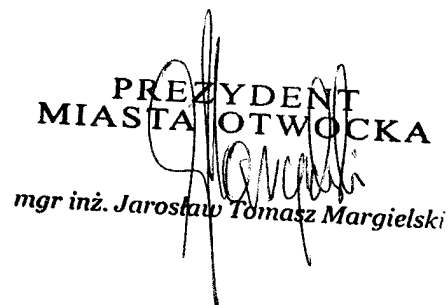 PREZYDENT
MIASTA OTWOCKA
mgr inż. Jarosław Tomasz Margielski